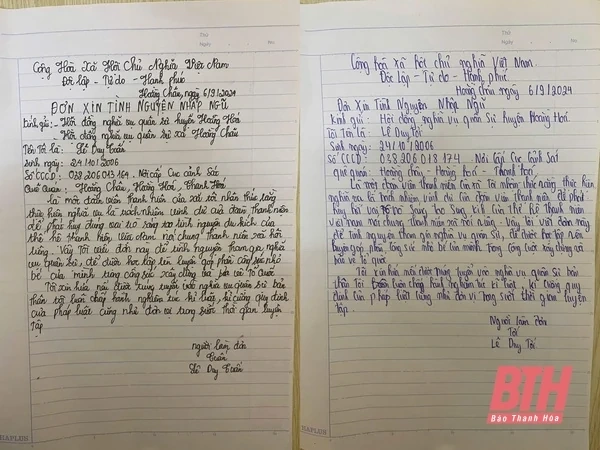 Thứ
Ngày No
Cộng Hòa Xã Hội Chủ Nghĩa Việt Nam
Độc lập - Tự do - Hạnh phúc
Hoằng Châu, ngày 6/9/2024
ĐƠN XIN TÌNH NGUYỆN NHẬP NGŨ
Kính gửi: - Hội đồng nghĩa vụ quân sự huyện Hoằng Hoá
- Hội đồng nghĩa vụ quân sự xã Hoằng Châu
Tên Tôi là: Lê Duy Tuấn
Sinh ngày: 24/10/2006
Số CCCD: 038 206 013 164. Nơi cấp Cục cảnh sát
Quê quán: Hoằng Châu, Hoằng Hoá, Thanh Hoá
là một đoàn viên thanh niên của xã tôi nhận thức rằng
thực hiện nghĩa vụ là trách nhiệm vinh dự của đoàn thanh niên
để phát huy đúng vai trò sáng tạo xung kích của
thế hệ thanh niên Việt Nam nói chung Thanh niên xã nói
riêng. Vậy Tôi viết đơn này để tình nguyện tham gia nghĩa
vụ quân sự, để được học tập rèn luyện góp phần công sức nhỏ
bé của mình trong công cuộc xây dựng bảo vệ Tổ Quốc
Tôi xin hứa nếu được trúng tuyển vào nghĩa vụ quân sự bản
thân tôi luôn chấp hành nghiêm túc kỉ luật, kỉ cương quy định
của pháp luật cũng như đơn vị trong suốt thời gian luyện
tập
người làm đơn
Tuấn
Lê Duy Tuấn
HAPLUS
Thứ
Ngày No
Cộng hoà xã hội chủ nghĩa Việt Nam
Độc lập - Tự do - Hạnh phúc
Hoằng Châu ngày 6/9/2024
Đơn Xin Tình Nguyện Nhập Ngũ
Kính gửi: Hội đồng nghĩa vụ quân sự huyện Hoằng Hoá
Tôi Tên là: Lê Duy Tới
Sinh ngày: 24/10/2006
Số CCCD: 038 206 013 174. Nơi cấp Cục Cảnh sát
quê quán: Hoằng Châu - Hoằng hoá - Thanh hoá
Là một đoàn viên thanh niên của xã Tôi nhậm thức rằng thực hiện
nghĩa vụ là trách nhiệm vinh dự của đoàn thanh niên. Để phát
huy vai trò sáng tạo xung kích của thế hệ thanh niên
việt nam nói chung thanh niên xã nói riêng. Vậy tôi viết đơn này
để tình nguyện tham gia nghĩa vụ quân sự, để được học tập rèn
luyện góp phần công sức nhỏ bé của mình trong công cuộc xây dựng và
bảo vệ tổ quốc
Tôi xin hứa nếu được trúng tuyển vào nghĩa vụ quân sự bản
thân tôi luôn luôn chấp hành nghiêm túc kỉ luật, kỉ cương quy
định của pháp luật cũng như đơn vị trong suốt thời gian luyện
tập.
Người làm đơn
Tới
Lê Duy Tới
HAPLUS
BTH
Báo Thanh Hóa